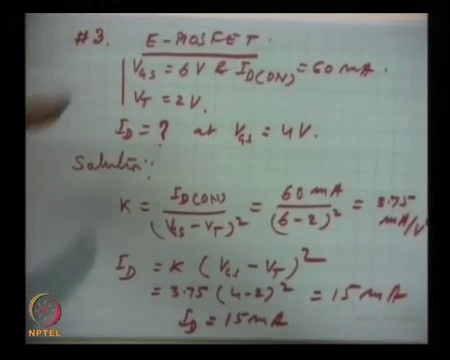 #3. E-MOSFET.
V_GS = 6 V & I_D(ON) = 60 mA.
V_T = 2 V.
I_D = ? at V_GS = 4 V.
Solution:
K = I_D(ON) / (V_GS - V_T)^2 = 60 mA / (6-2)^2 = 3.75 mA/V
I_D = K (V_GS - V_T)^2
= 3.75 (4-2)^2 = 15 mA
I_D = 15 mA
NPTEL